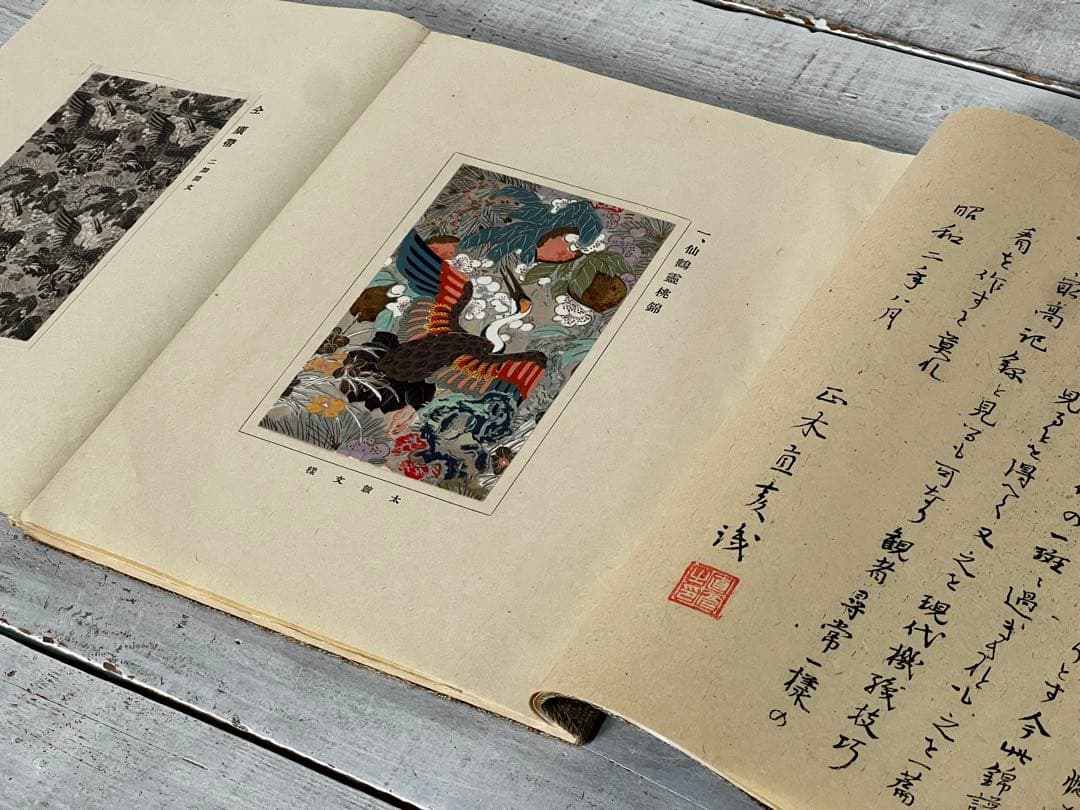 とす今此錦譜
の一斑に過ぎざれども之を一篇
見ることを得べく又之を現代機織技巧
最高記録と見るも可なり観者尋常一様の
看を作すこと莫れ
昭和二年八月 正木直彦識
一、仙鶴靈桃錦
太皷文樣
仝